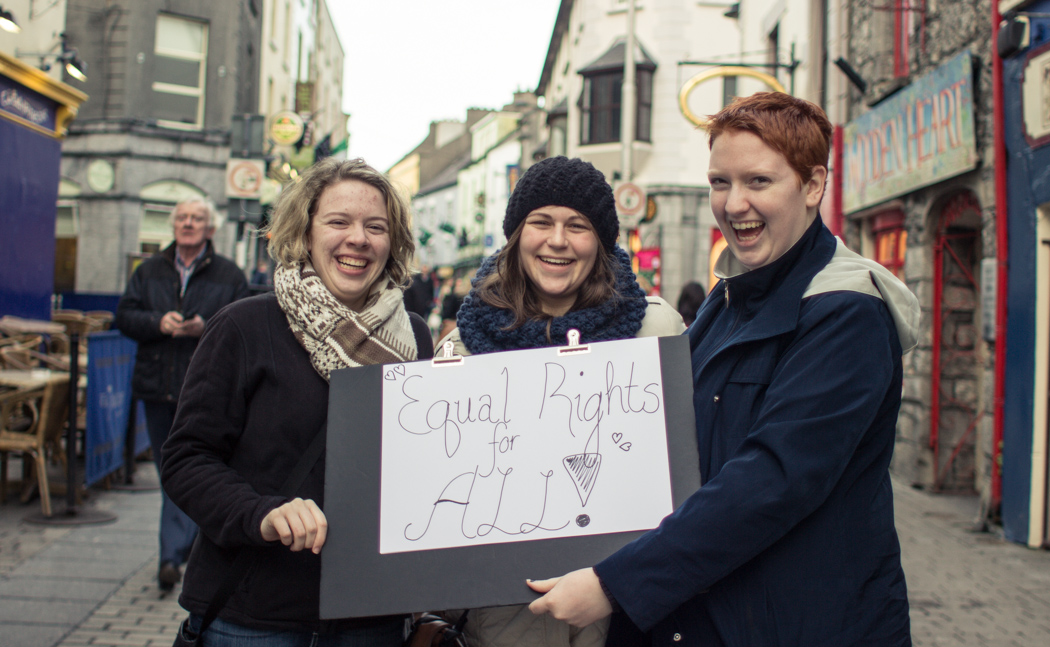 WOODEN HEART
Equal Rights
for
ALL!